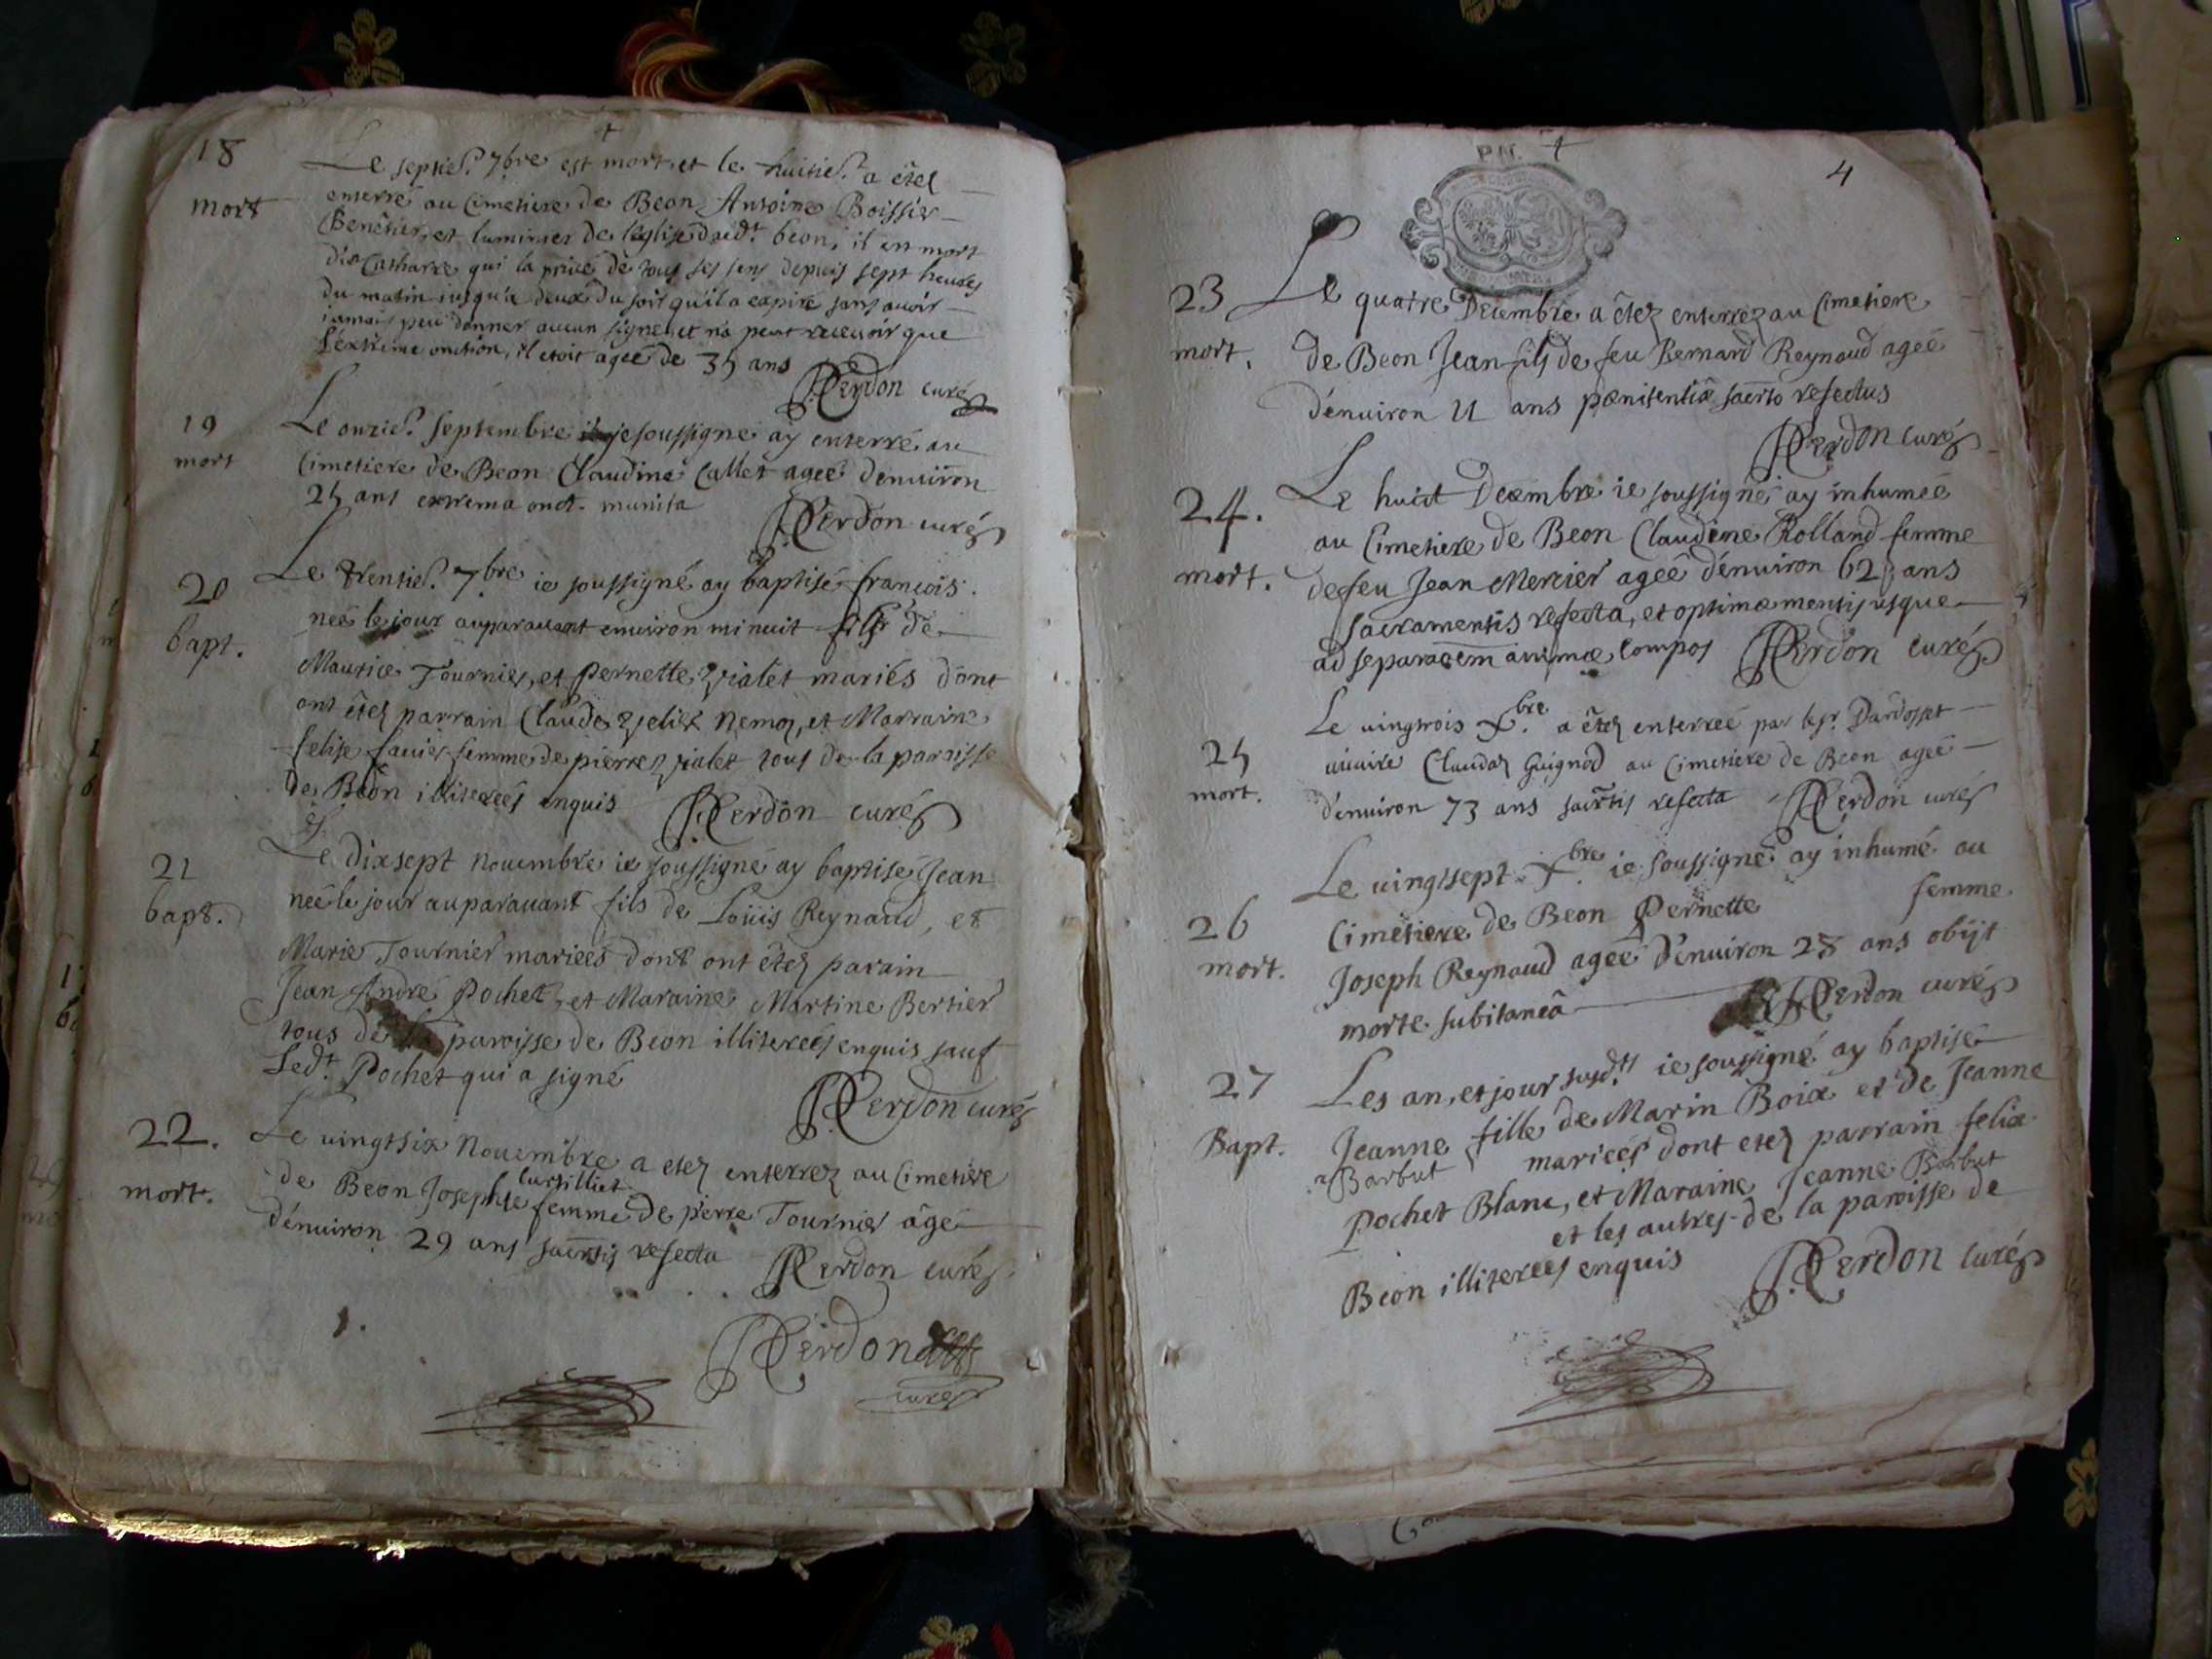 18
mort
Le septie? 7bre est mort, et le huitie? a étéz
enterré au Cimetiere de Beon Antoine Boissier
Benétier, et luminier de l'église dud.t beon, il en mort
d'un Catharre qui la privé de tous ses sens depuis sept heures
du matin iusqu'a deux du soir qu'il a expiré sans avoir
iamais peu donner aucun signe, et n'a peut recevoir que
l'extreme onction, il etoit ageé de 35 ans
Perdon curé
19
mort
Le onzie? septembre je soussigné ay enterré au
Cimetiere de Beon Claudine Callet ageé d'enuiron
25 ans extrema onct. munita
Perdon curé
20
bapt.
Le trentie? 7bre ie soussigné ay baptisé françois
neé le jour auparauant enuiron minuit fils de
Maurice Tournier, et Pernette Vialet mariés dont
ont étéz parrain Claude nemoz, et Marraine
felise femme de pierre Vialet tous de la paroisse
de Beon illitereés enquis Perdon curé
21
bapt.
Le dixsept nouembre ie soussigné ay baptisé Jean
neé le jour auparauant fils de Loüis Reynaud, et
Marie Tournier marieés dont ont étéz parain
Jean André Pochet, et Maraine Martine Bertier
tous de la paroisse de Beon illitereés enquis sauf
Led.t Pochet qui a signé
Perdon curé
22.
mort.
Le uingtsix Nouembre a etéz enterrez au Cimetiere
de Beon Josephte Curtilliet femme de pierre Tournier âgé
d'enuiron 29 ans sacrtis refecta Perdon curé
Perdon
curé
P.N.
4
23
mort.
Le quatre Decembre a étéz enterrez au Cimetiere
de Beon Jean fils de feu Bernard Reynaud ageé
d'enuiron 11 ans pænitentiæ sacrto refectus
Perdon curé
24.
mort.
Le huict Decembre ie soussigné ay inhumeé
au Cimetiere de Beon Claudine Rolland femme
de feu Jean Mercier ageé d'enuiron 62 ans
sacramentis refecta, et optimæ mentis usque
ad separaôem animæ compos Perdon curé
25
mort.
Le uingtrois Xbre a étéz enterreé par le sr. Dardosset
uicaire Claudaz Guignod au Cimetiere de Beon ageé
d'enuiron 73 ans sacrtis refecta Perdon curé
26
mort.
Le uingtsept Xbre ie soussigné ay inhumé au
Cimetiere de Beon Pernette femme
Joseph Reynaud ageé d'enuiron 28 ans obijt
morte subitaneâ Perdon curé
27
Bapt.
Les an, et jour susd.ts ie soussigné ay baptisé
Jeanne fille de Marin Boix et de Jeanne
Barbut marieés dont etéz parrain felix
Pochet Blanc, et Maraine Jeanne Barbut
et les autres de la paroisse de
Beon illitereés enquis Perdon curé